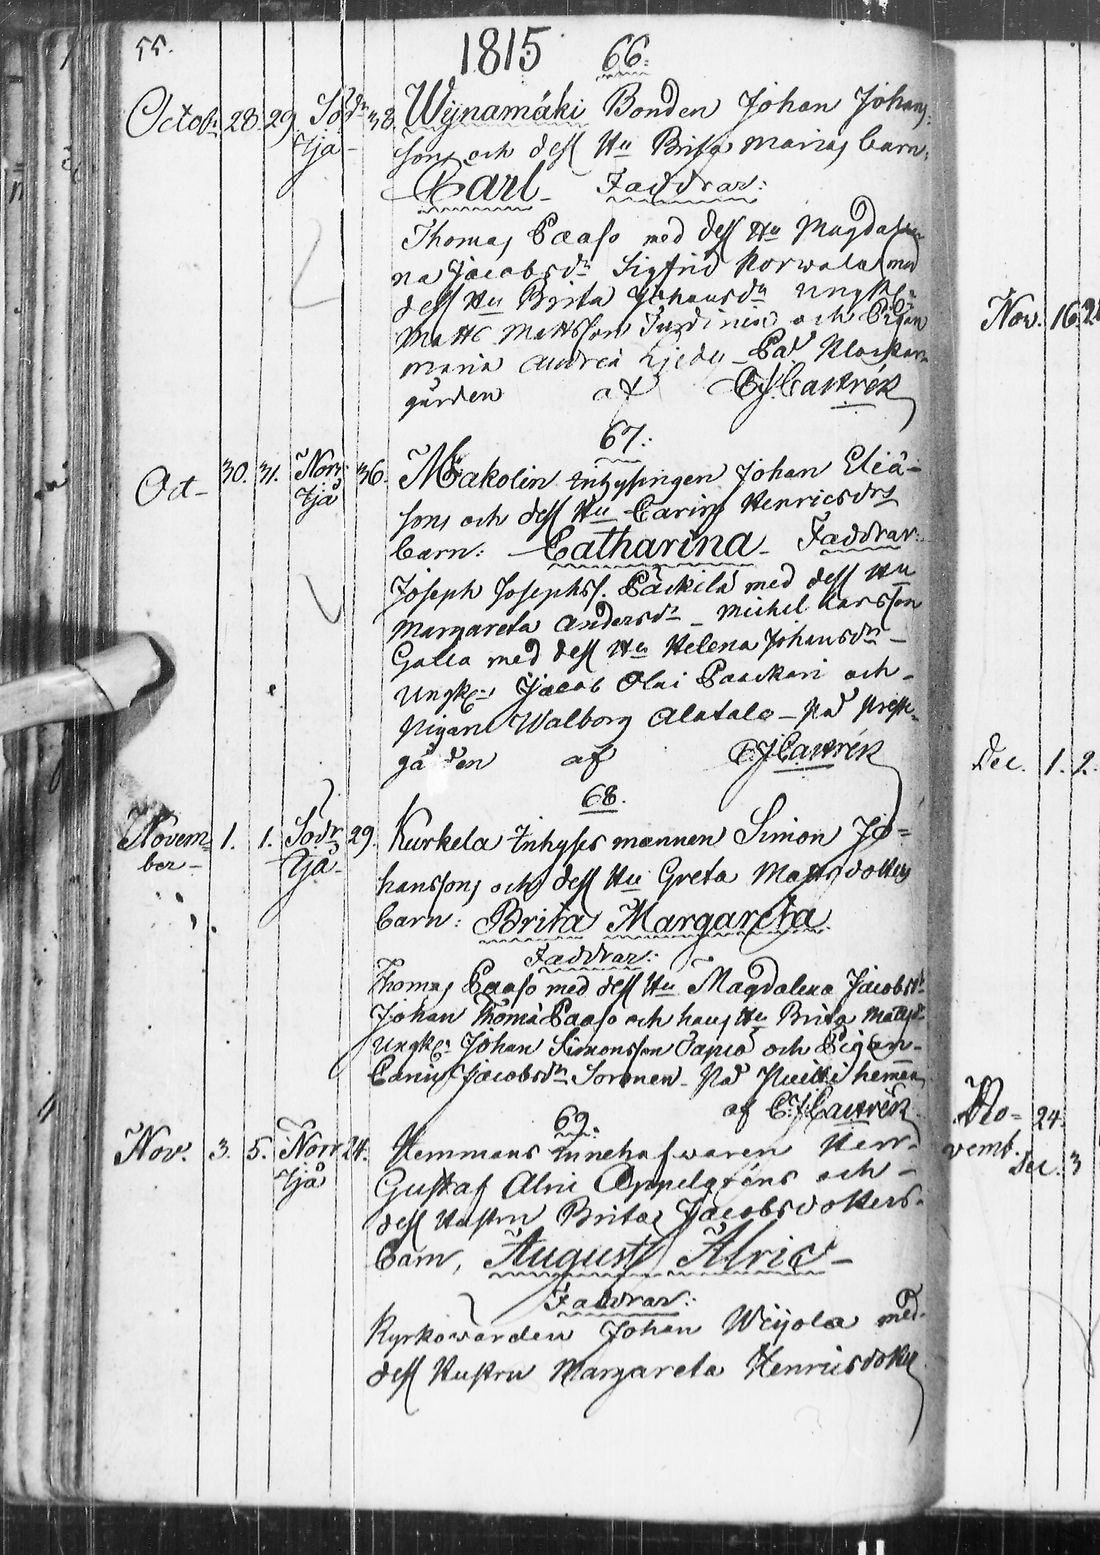 55.
1815
66.
Octob. 28. 29. Södr 38. Wijnamäki Bonden Johan Johans
Tjä sons och dess Hu Brita Marias barn:
Carl - Faddrar:
Thomas Paaso med dess Hu Magdale
na Jacobsdr Sigfrid Korwala med
dess Hu Brita Johansdr Ungk:n
Matts Mattsson och Pigan
Maria Andreä Klockare
gården af C.J. Cawrén
67.
Oct - 30. 31. Norr 36. Makolin Inhysingen Johan Eliä-
Tjä sons och dess Hu Carin Henricsdrs
barn: Catharina - Faddrar:
Joseph Josephss. Päckilä med dess Hu
Margareta Andersdr - Michel Larsson
Galla med dess Hu Helena Johansdr -
Ungk:n Jacob Olai Paackari och -
Pigan Walborg Alatalo - På Prest-
gården af C.J. Cawrén
68.
Novem= 1. 1. Södr 29. Kurkela Inhyses mannen Simon Jo=
ber - Tjä - hanssons och dess Hu Greta Mattsdotters
barn: Brita Margareta
Faddrar:
Thomas Paaso med dess Hu Magdalena Jacobsdr
Johan Thomä Paaso och hans Hu Brita Mattsdr
Ungk:n Johan Simonsson Tapio och Pigan -
Carin Jacobsdr Soronen - På hemman
af C.J. Cawrén
69.
Nov. 3. 5. Norr 24. Hemmans Innehafwaren Herr
Tjä Gustaf Alric Appelgréns och -
dess Hustru Britas Jacobsdotters
barn, August Alric -
Faddrar:
Kyrkovärden Johan Weijola med
dess Hustru Margareta Henricsdotter
Nov. 16.
Dec. 1. 2.
No= 24.
vemb.
Dec. 3